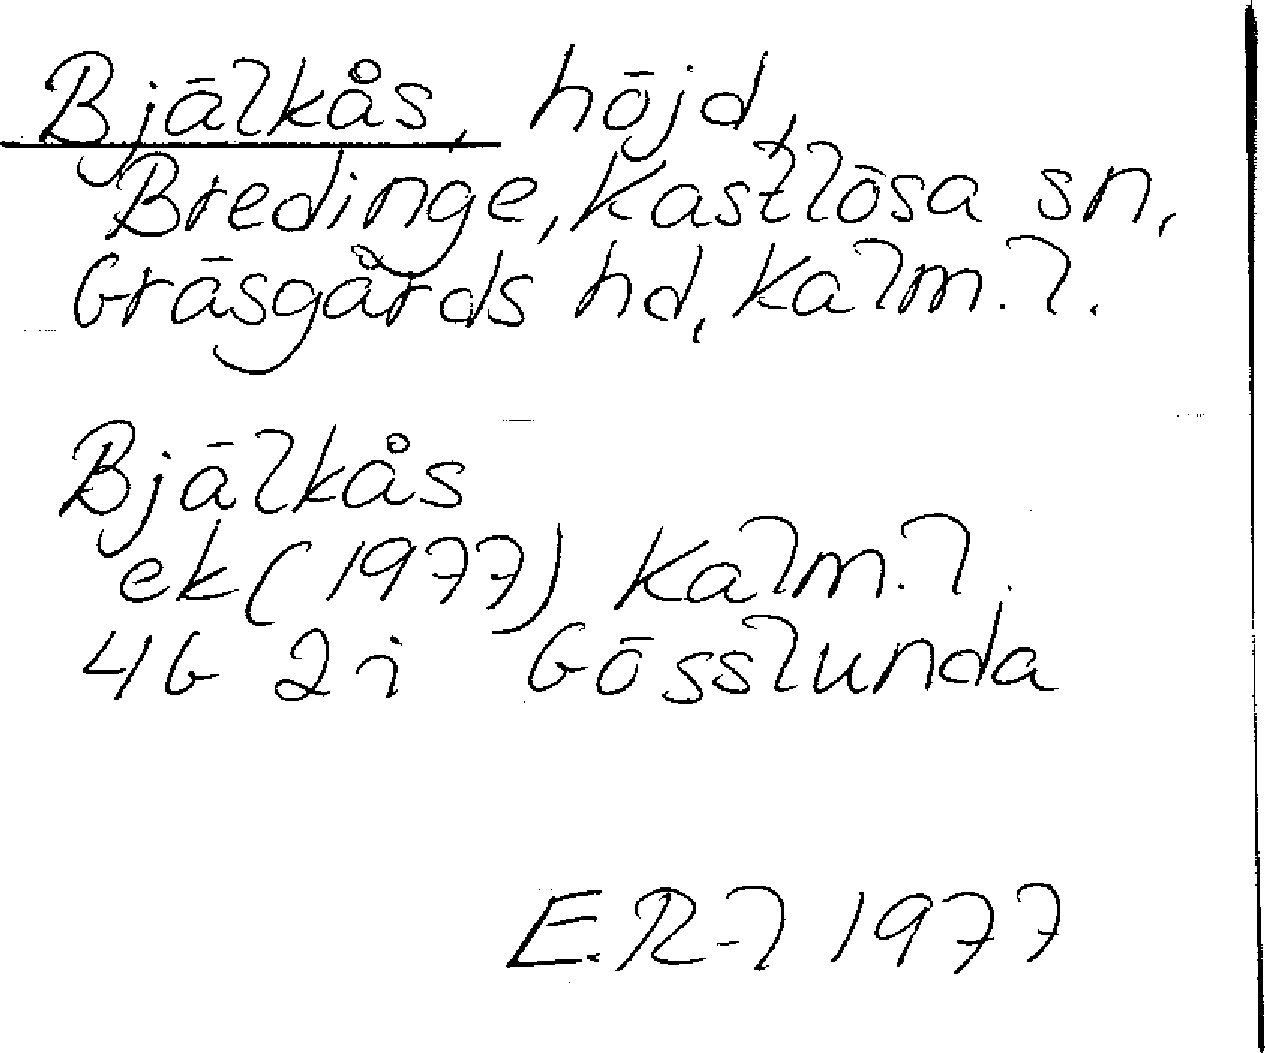 Bjälkås, höjd,
Bredinge, Kastlösa sn,
Gräsgårds hd, Kalm. l.
Bjälkås
ek (1977) Kalm. l.
4G 2i Gösslunda
E.R-l 1977